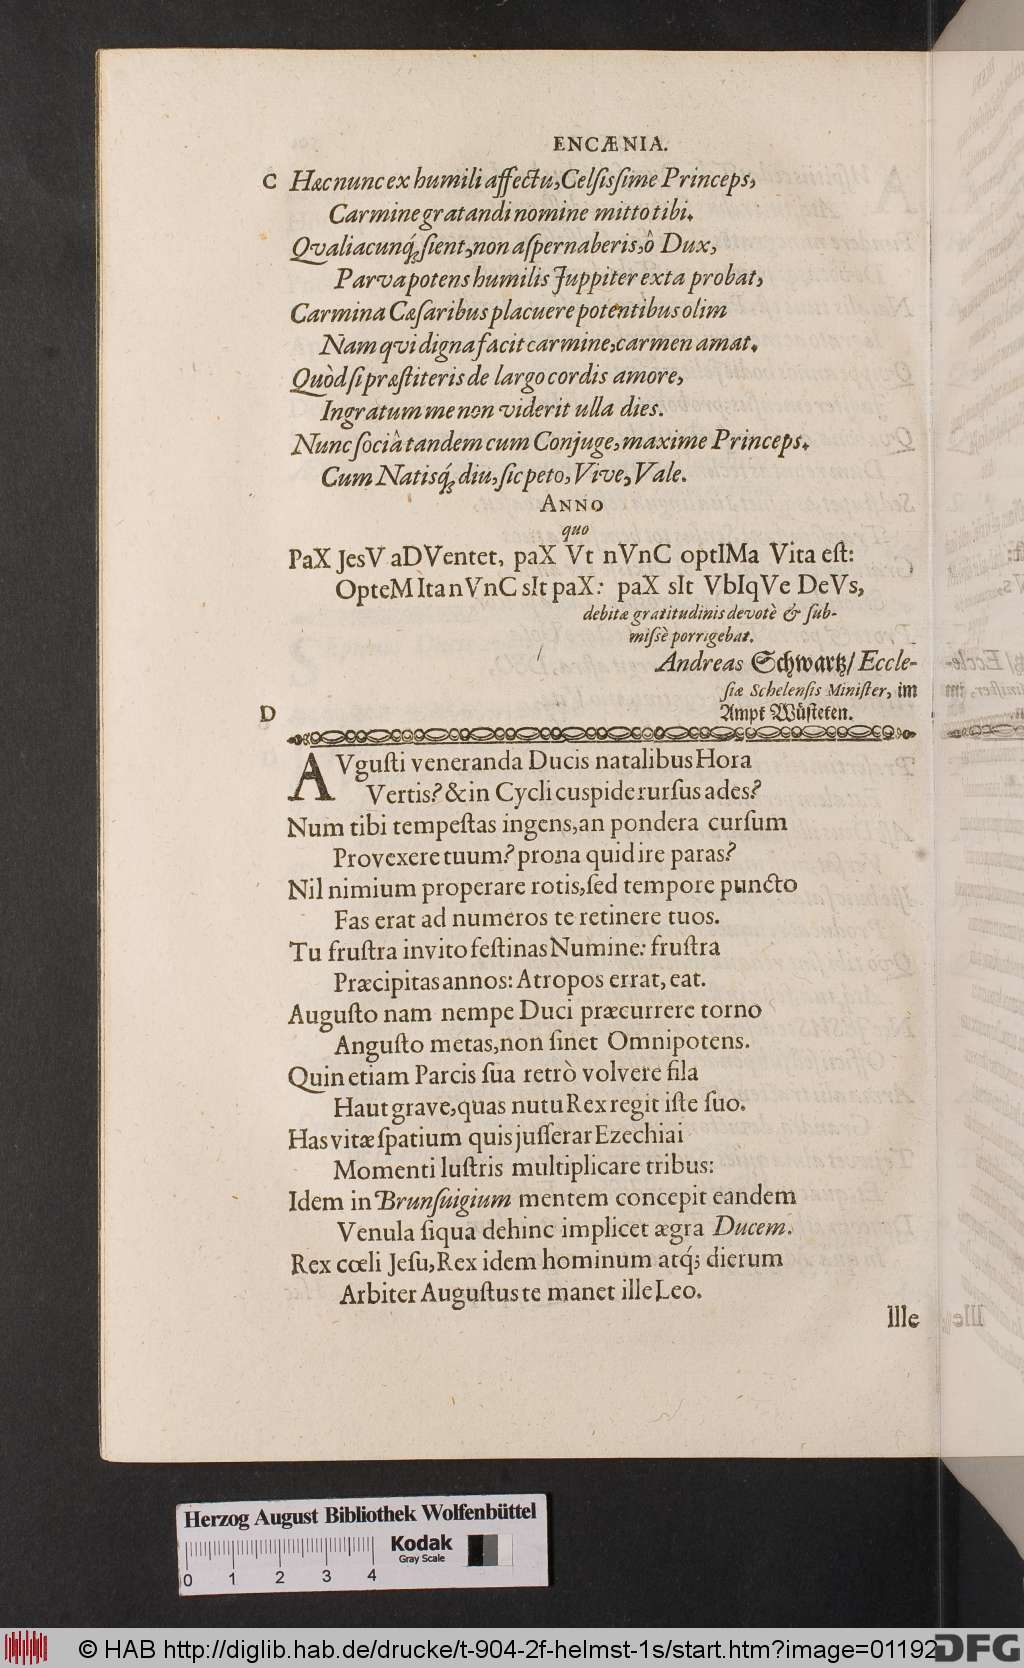 ENCÆNIA.
C Hæc nunc ex humili affectu, Celſisſime Princeps,
Carmine gratandi nomine mitto tibi.
Qvaliacunq́; ſient, non aſpernaberis, ô Dux,
Parva potens humilis Juppiter exta probat,
Carmina Cæſaribus placuere potentibus olim
Nam qvi digna facit carmine, carmen amat.
Quòd ſi præſtiteris de largo cordis amore,
Ingratum me non viderit ulla dies.
Nunc ſociâ tandem cum Conjuge, maxime Princeps.
Cum Natisq́; diu, ſic peto, Vive, Vale.
ANNO
quo
PaX JesV aDVentet, paX Vt nVnC optIMa Vita eſt:
OpteM Ita nVnC sIt paX: paX sIt VbIqVe DeVs,
debitæ gratitudinis devotè & ſub-
miſsè porrigebat.
Andreas Schwartz/ Eccle-
ſiæ Schelenſis Miniſter, im
Ampt Wůlſteten.
D
AVguſti veneranda Ducis natalibus Hora
Vertis? & in Cycli cuspide rurſus ades?
Num tibi tempeſtas ingens, an pondera curſum
Provexere tuum? prona quid ire paras?
Nil nimium properare rotis, ſed tempore puncto
Fas erat ad numeros te retinere tuos.
Tu fruſtra invito feſtinas Numine: fruſtra
Præcipitas annos: Atropos errat, eat.
Auguſto nam nempe Duci præcurrere torno
Anguſto metas, non ſinet Omnipotens.
Quin etiam Parcis ſua retrò volvere fila
Haut grave, quas nutu Rex regit iſte ſuo.
Has vitæ ſpatium quis juſſerar Ezechiai
Momenti luſtris multiplicare tribus:
Idem in Brunſuigium mentem concepit eandem
Venula ſiqua dehinc implicet ægra Ducem.
Rex cœli Jeſu, Rex idem hominum atq́; dierum
Arbiter Auguſtus te manet ille Leo.
Ille
Herzog August Bibliothek Wolfenbüttel
Kodak
Gray Scale
0 1 2 3 4
© HAB http://diglib.hab.de/drucke/t-904-2f-helmst-1s/start.htm?image=01192
DFG